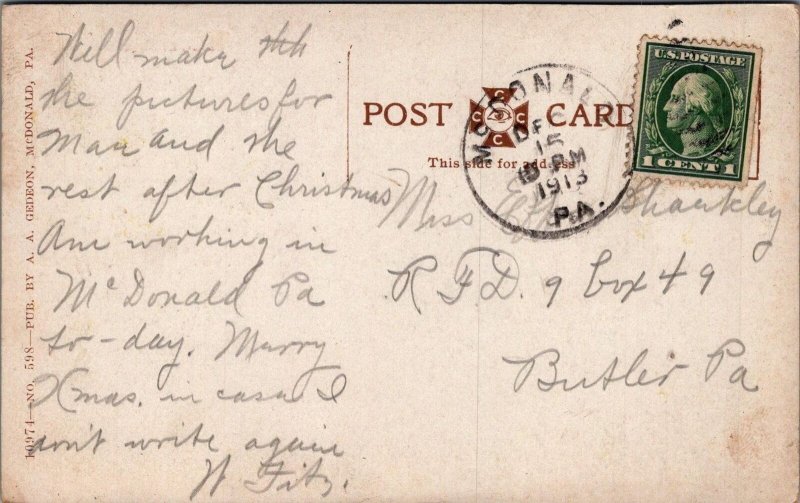 Will make
the pictures for
Mau and the
rest after Christmas
Am working in
McDonald Pa
to-day. Marry
Xmas. in casa I
don't write again
W Fitz.
10974—NO. 598—PUB. BY A. A. GEDEON, McDONALD, PA.
POST CARD
C C C C
This side for address
McDONALD
DEC
15
PM
1913
PA.
U.S. POSTAGE
1 CENT 1
Miss Shankley
R.F.D. 9 box 49
Butler Pa